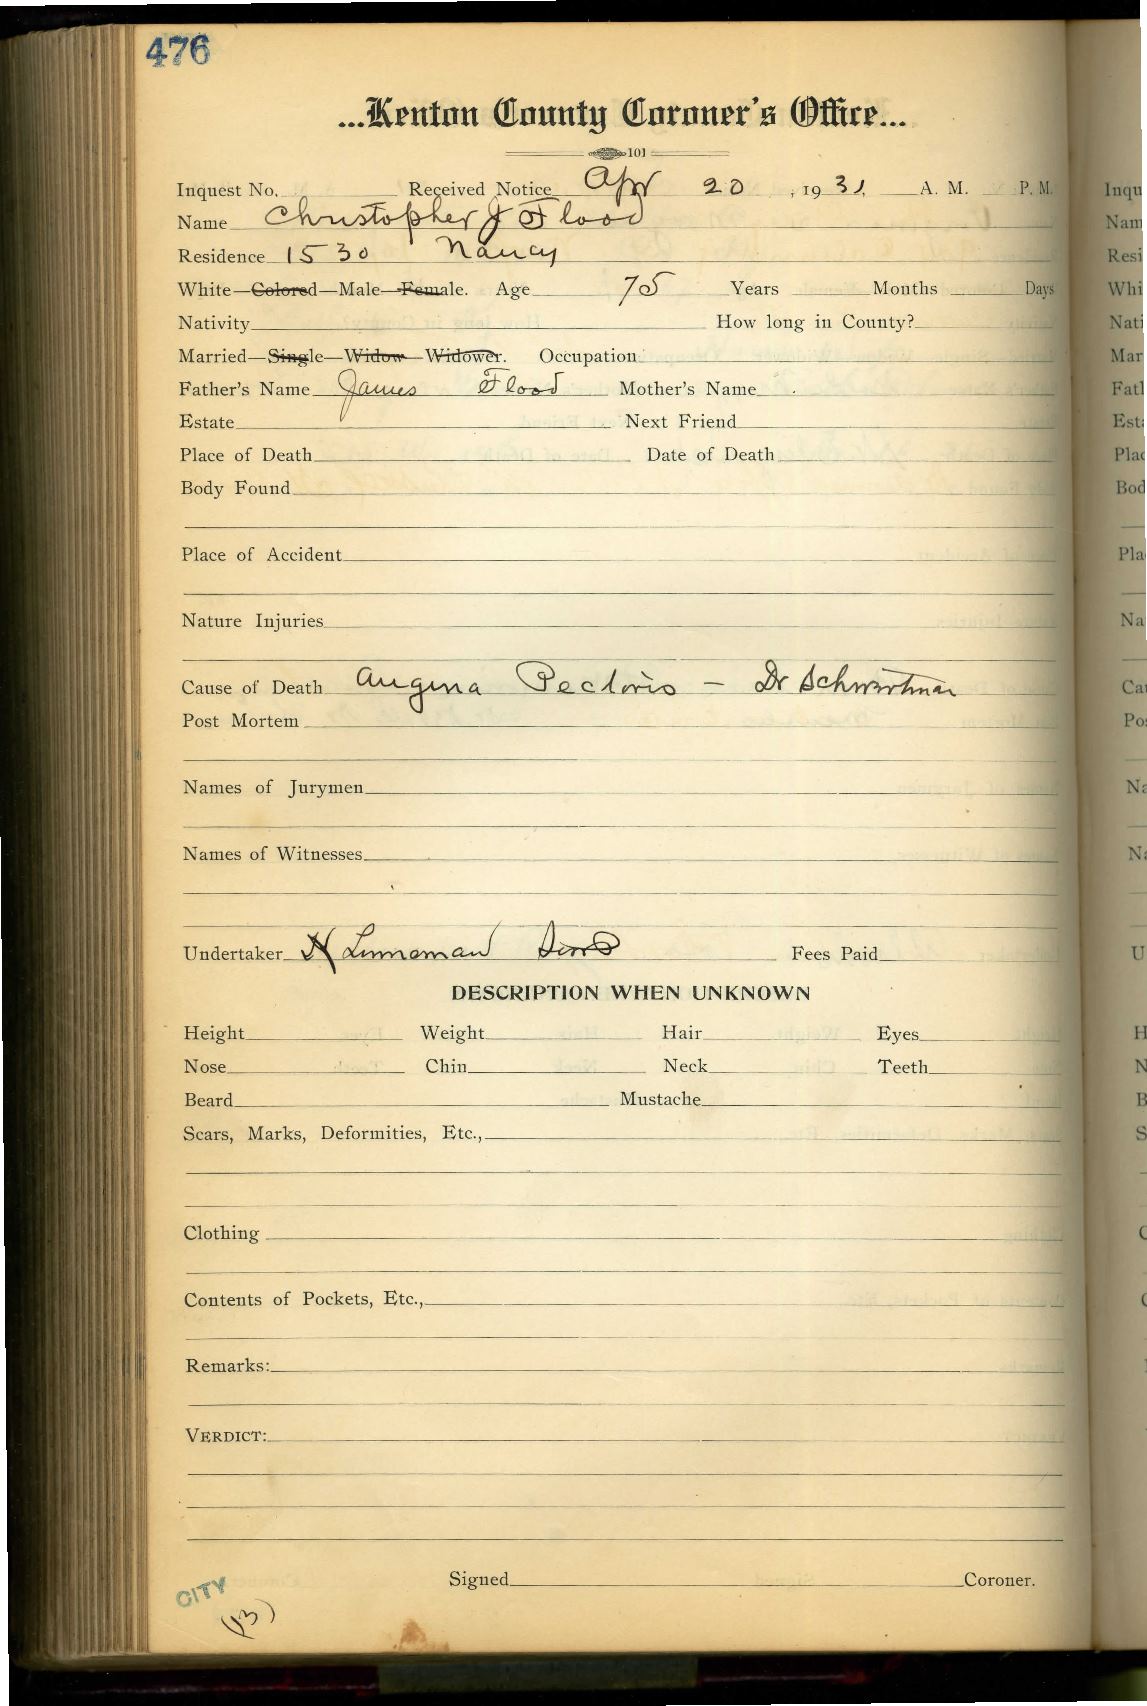 476
...Kenton County Coroner's Office...
101
Inquest No. Received Notice Apr 20, 1931, A. M. P. M.
Name Christopher J Flood
Residence 1530 Nancy
White—Colored—Male—Female. Age 75 Years Months Days
Nativity How long in County?
Married—Single—Widow—Widower. Occupation
Father's Name James Flood Mother's Name
Estate Next Friend
Place of Death Date of Death
Body Found
Place of Accident
Nature Injuries
Cause of Death Angina Pectoris — Dr
Post Mortem
Names of Jurymen
Names of Witnesses
Undertaker Linneman Sons Fees Paid
DESCRIPTION WHEN UNKNOWN
Height Weight Hair Eyes
Nose Chin Neck Teeth
Beard Mustache
Scars, Marks, Deformities, Etc.,
Clothing
Contents of Pockets, Etc.,
Remarks:
VERDICT:
Signed Coroner.
CITY
(13)